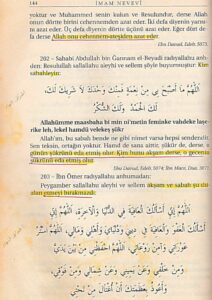 144 İMAM NEVEVÎ
yoktur ve Muhammed senin kulun ve Resulündür, derse Allah
onun dörtte birini cehennemden azat eder. İki defa diyenin yarısını
azat eder. Üç defa diyenin dörtte üçünü azat eder. Eğer dört
defa derse Allah onu cehennem ateşinden azat eder.
Ebu Davud, Edeb, 5073.
202 – Sahabi Abdullah bin Gannam el-Beyadi radıyallahu
anhden: Resulullah sallallahu aleyhi ve sellem şöyle buyurmuştur: Kim
sabahleyin:
اَللّٰهُمَّ مَا أَصْبَحَ بِي مِنْ نِعْمَةٍ فَمِنْكَ وَحْدَكَ لَا شَرِيكَ لَكَ
لَكَ الْحَمْدُ وَلَكَ الشُّكْرُ
Allahümme maasbaha bi min ni'metin feminke vahdeke laşe-
rike leh, lekel hamdü velekeş şükr
Allah'ım, bu sabah bende ne gibi nimet varsa hepsi sendendir.
Sen teksin, ortağın yoktur. Hamd de sana aittir, şükür de, derse o
günün şükrünü eda etmiş olur. Kim bunu akşam derse, o gecenin
şükrünü eda etmiş olur.
Ebu Davud, Edeb, 5073;
203 – İbn Ömer radıyallahu anhumadan:
Peygamber sallallahu aleyhi ve sellem akşam ve sabah şu du
aları
اَللّٰهُمَّ إِنِّي أَسْأَلُكَ الْعَافِيَةَ فِي الدُّنْيَا وَالْآخِرَةِ، اَللّٰهُمَّ إِنِّي
أَسْأَلُكَ الْعَفْوَ وَالْعَافِيَةَ فِي دِينِي وَدُنْيَايَ وَأَهْلِي وَمَالِي، اَللّٰهُمَّ اسْتُرْ
عَوْرَاتِي، وَآمِنْ رَوْعَاتِي، اَللّٰهُمَّ احْفَظْنِي مِنْ بَيْنِ يَدَيَّ
وَمِنْ خَلْفِي وَعَنْ يَمِينِي وَعَنْ شِمَالِي وَمِنْ فَوْقِي
وَأَعُوذُ بِعَظَمَتِكَ أَنْ أُغْتَالَ مِنْ تَحْتِي